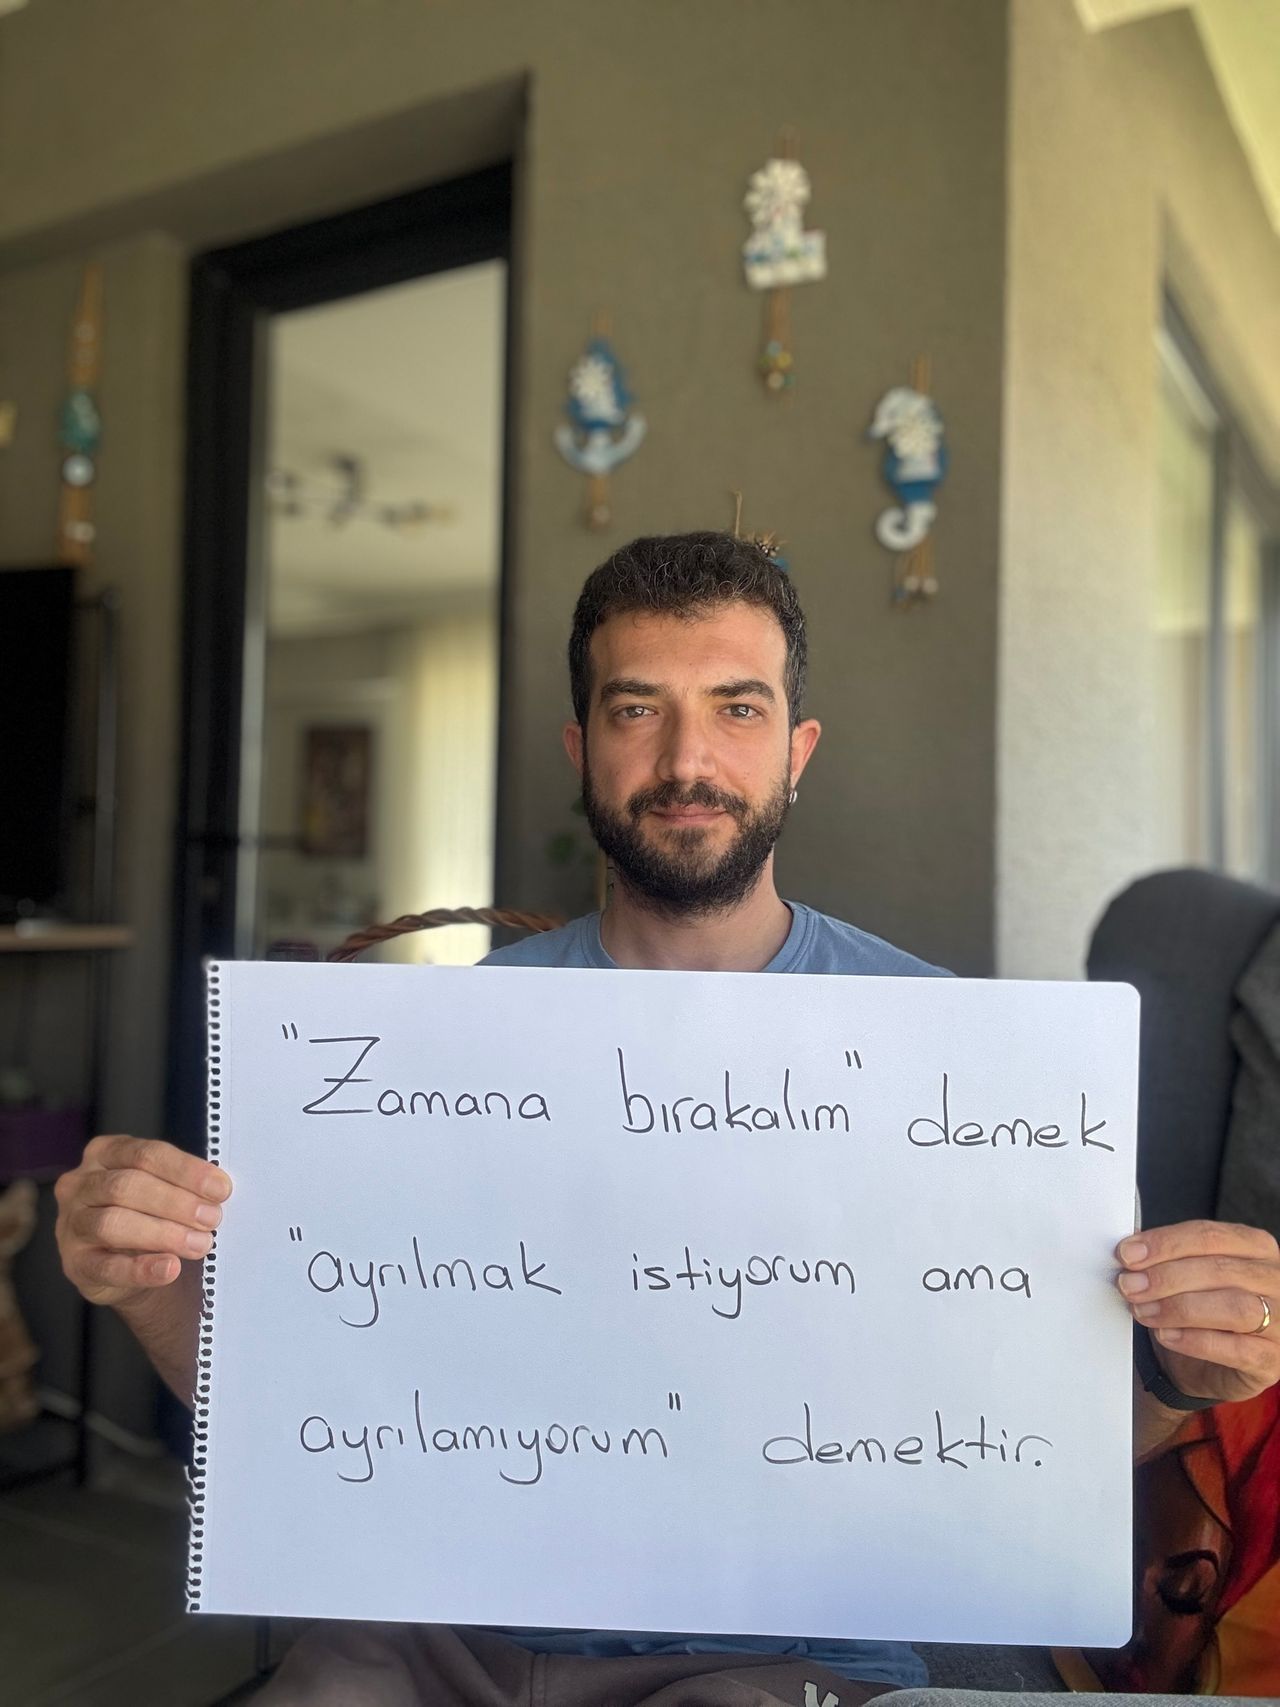 "Zamana bırakalım" demek
"ayrılmak istiyorum ama
ayrılamıyorum" demektir.